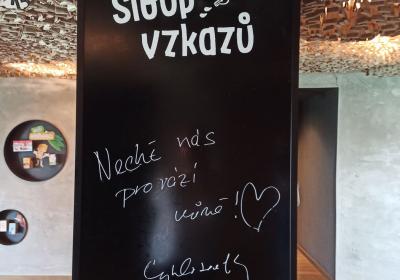 Sloup
vzkazů
Nechť nás
provází
vůně!